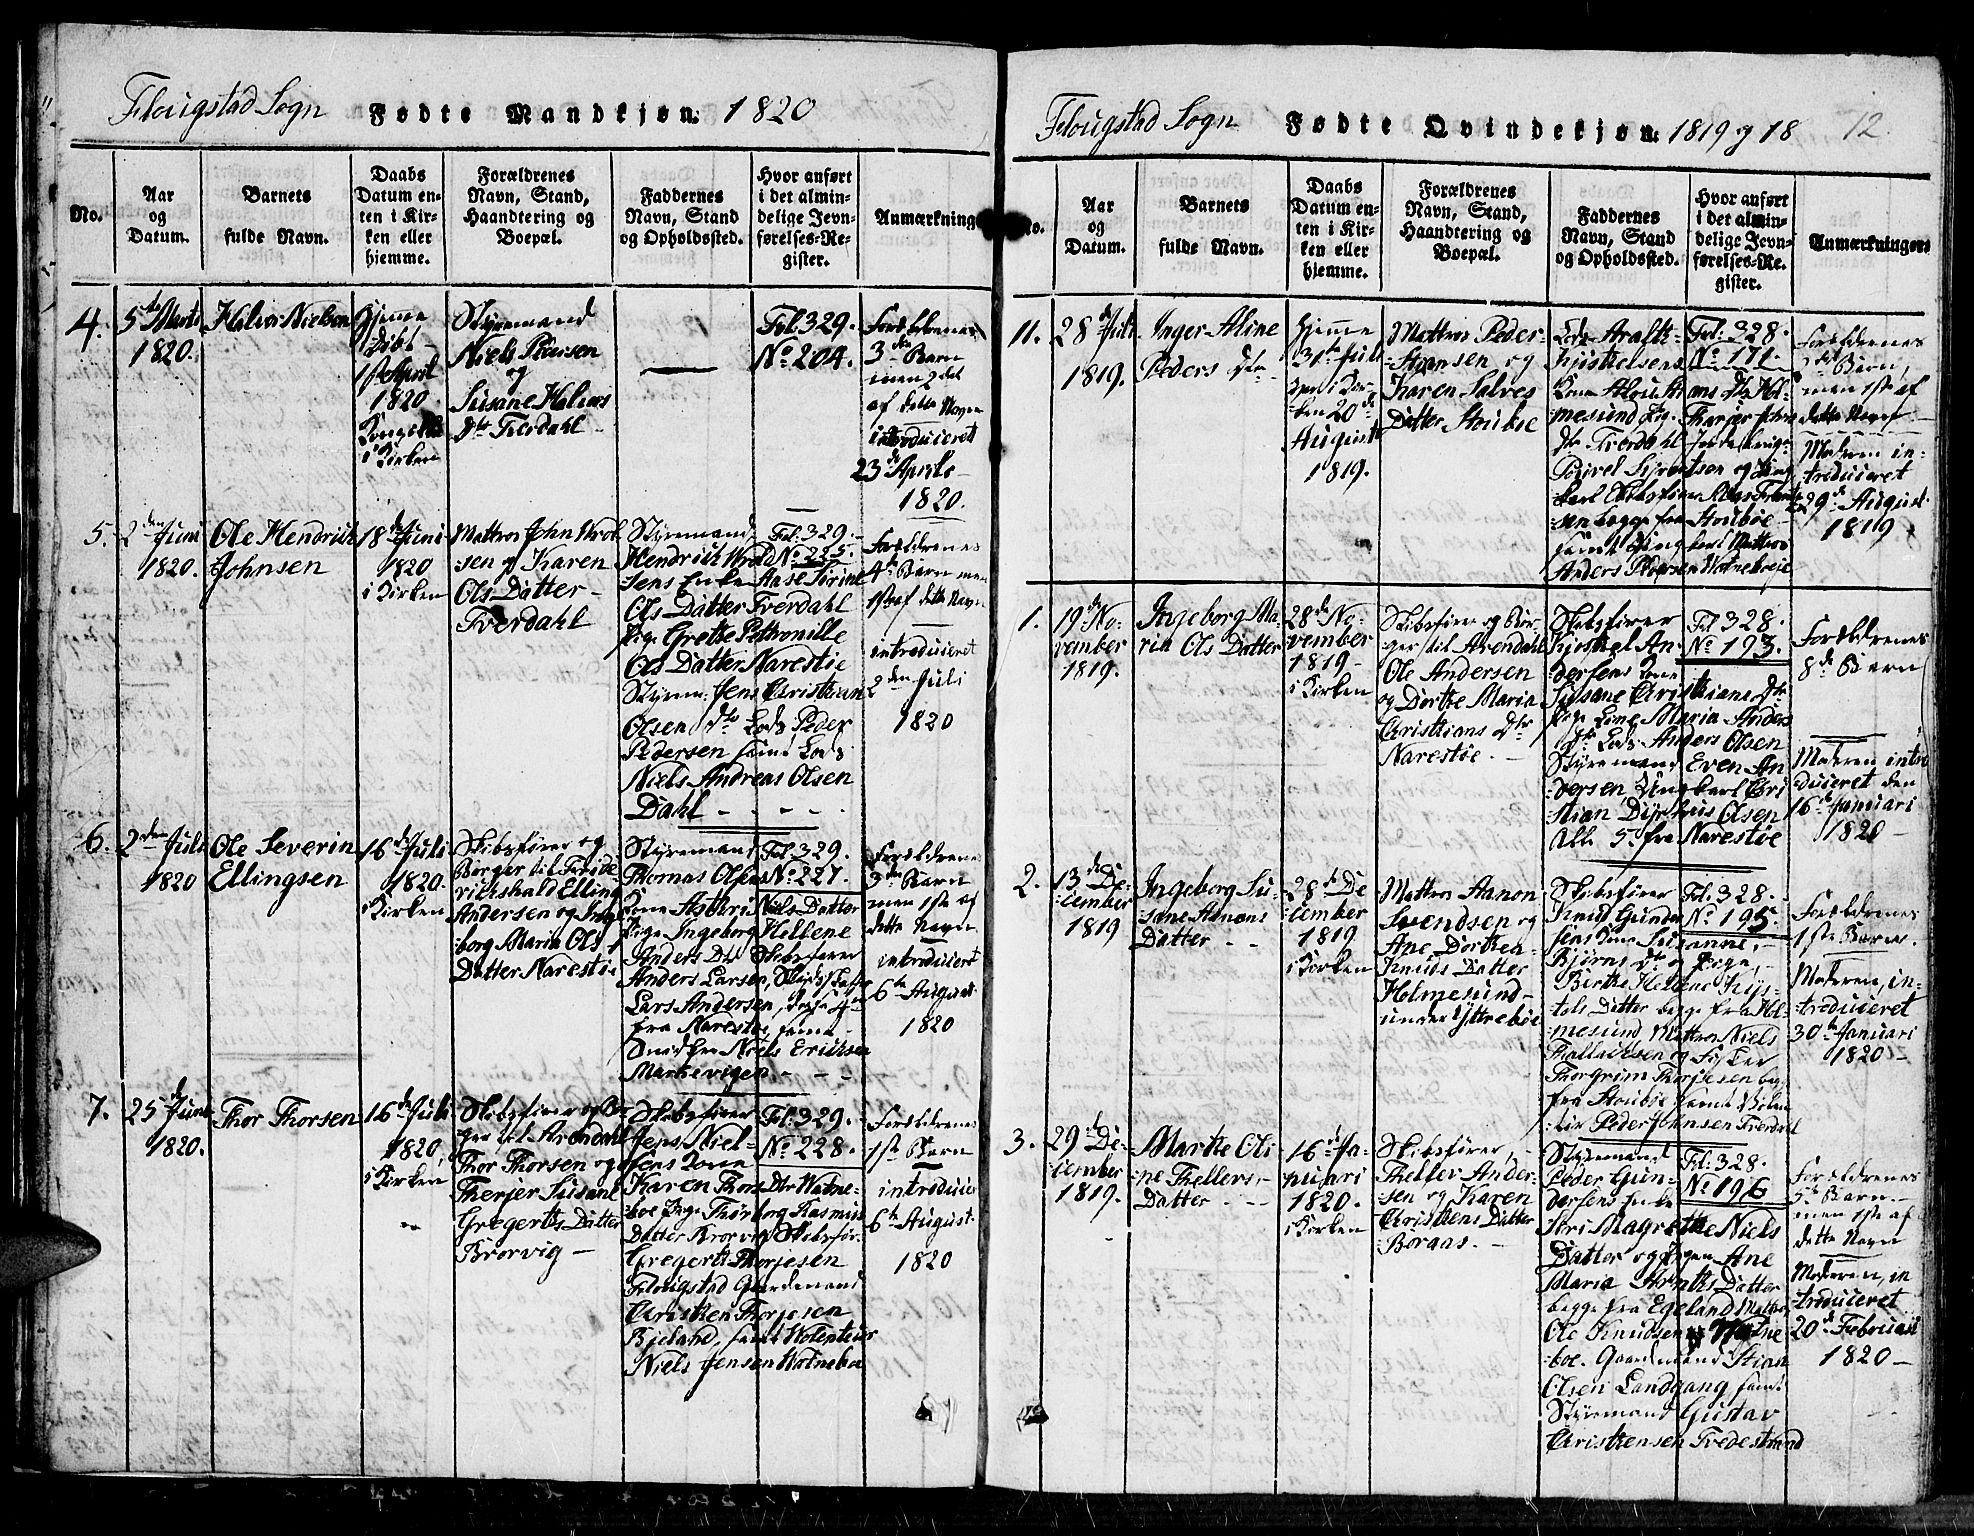 Flougstad Sogn Fødte Mandkjøn. 1820
No.
Aar
og
Datum.
Barnets
fulde Navn.
Daabs
Datum en-
ten i Kir-
ken eller
hjemme.
Forældrenes
Navn, Stand,
Haandtering og
Boepæl.
Faddernes
Navn, Stand
og Opholdssted.
Hvor anført
i det almin-
delige Jevn-
førelses-Re-
gister.
Anmærkning
4.
5te Marti
1820.
Halvor Nielsen
Hjeme
Döbt
1ste April
1820
i Kirken
Styremand
Niels
og
Susane Halvors
Dtr Tverdahl
Fol. 329.
No. 204.
Forældrenes
3de Barn
men 2det
af dette Navn
introduceret
23de Aprile
1820.
5.
2den Juni
1820.
Ole Hendrich
Johnsen
18de Juni
1820
i Kirken
Matros John Wrol
sen og Karen
Ols Datter
Tverdahl
Styremand
Hendrich Wrold
sens Enke Aase Sirine
Ols Datter Tverdahl
Pige Grethe Pettronille
Ols Datter Narestöe
Styrm. Jens Christian
Olsen dto Lods Peder
Pedersen samt Lods
Niels Andreas Olsen
Dahl
Fol. 329.
No. 225.
Forældrenes
4de Barn men
1ste af dette Navn
introduceret
2den Juli
1820
6.
2den Juli
1820
Ole Severin
Ellingsen
16de Juli
1820.
i Kirken
Skibsfører og
Borger til Fride
richshald Elling
Andersen og Inge
borg Maria Ols
Datter Narestöe
Styremand
Thomas Olsens
Kone Asthri Niels Datter
Pige Ingeborg Hellene
Anders Dtr Skibsfører
Anders Larsen,
Lars Andersen,
fra Narestöe, samt
Niels Erichsen
Markevigen
Fol. 329.
No. 227.
Forældrenes
3de Barn
men 1ste af
dette Navn
introduceret
6te August
1820
7.
25de Juni
1820.
Thor Thorsen
16de Juli
1820,
i Kirken
Skibsfører og Bor
ger til Arendahl
Thor Thorsen og
Therjer Susane
Gregerts Datter
Brorvig
Skibsfører
Jens Niel-
sens Kone
Karen Thors Dtr Watne-
boe Pige Thorborg Rasmus
Datter Brorvig Skibsför.
Gregert Thorjesen
Flougstad Gaardmand
Christen Thorjesen
samt
Niels Jensen Wotneboe
Fol. 329.
No. 228.
Forældrenes
1ste Barn
introducer
6te August
1820
Flougstad Sogn Fødte Qvindekjøn. 1819 og 18 12.
No.
Aar
og
Datum.
Barnets
fulde Navn.
Daabs
Datum en-
ten i Kir-
ken eller
hjemme.
Forældrenes
Navn, Stand,
Haandtering og
Boepæl.
Faddernes
Navn, Stand
og Opholdssted.
Hvor anført
i det almin-
delige Jevn-
førelses-Re-
gister.
Anmærkninger
11.
28de Juli
1819.
Inger Aline
Peders Dtr
Hjeme
31te Juli
i Kir-
ken 20de
Augusti
1819.
Matros Peder
Hansen og
Karen Salves
Datter Stouböe
Fol. 328.
No. 171.
Tverdahl
begge fra Stouböe
samt Ungkarl Matros
Anders
Forældrenes
2det Barn,
men 1ste af
dette Navn
Moderen in-
troduceret
29de August
1819
1.
19de No-
vember
1819.
Ingeborg Ma-
ria Ols Datter
28de No-
vember
1819
i Kirken
Skibsfører og Bor-
ger til Arendahl
Ole Andersen
og Dorthe Maria
Christians Dtr
Narestöe.
Skibsfører
Kjøstel An
dersens Kone
Susane Christiane Dtr
Pige Line Maria Anders
Dtr Lods Anders Olsen
Styremand Even An
dersen Ungkarl Chri
stian Olsen
Alle 5 fra Narestöe
Fol. 328.
No. 193.
Forældrenes
8de Barn
Moderen intro
duceret den
16de Januari
1820
2.
13de De-
cember
1819
Ingeborg Su-
sane Aanons
Datter
28de De-
cember
1819
i Kirken
Matros Aanon
Svendsen og
Ane Dorthea
Knuds Datter
Holmesund
under Yttreböe
Skibsfører
Knud Gunder
sens Kone Susanne
Björns Dtr og Pige,
Birthe Hellene
Datter begge fra Hol
mesund Matros Niels
Tallachsen og Fisker
Thorgrim Thorjesen begge
fra Stouböe samt
Peder Johnsen Tverdahl
Fol. 328.
No. 195.
Forældrenes
1ste Barn.
Moderen, in-
troduceret
30te Januari
1820
3.
29de De-
cember
1819.
Marthe Oli
ne Thellevs
Datter
16de Ja-
nuari
1820.
i Kirken
Skibsfører,
Thellev Ander-
sen og Karen
Christens Datter
Boraas.
Styremand
Peder Gun-
dersens Enke
Siri Magrethe Niels
Datter og Pigen Ane
Maria Arnths Datter
begge fra Egeland Matros
Ole Knudsen Watne
boe. Gaardmand Stian
Olsen Landgang, samt
Styremand Gustav
Christensen Tvedestrand
Fol. 328.
No. 196
Forældrenes
5te Barn
men 1ste af
dette Navn
Moderen, in
troduceret
20de Februari
1820